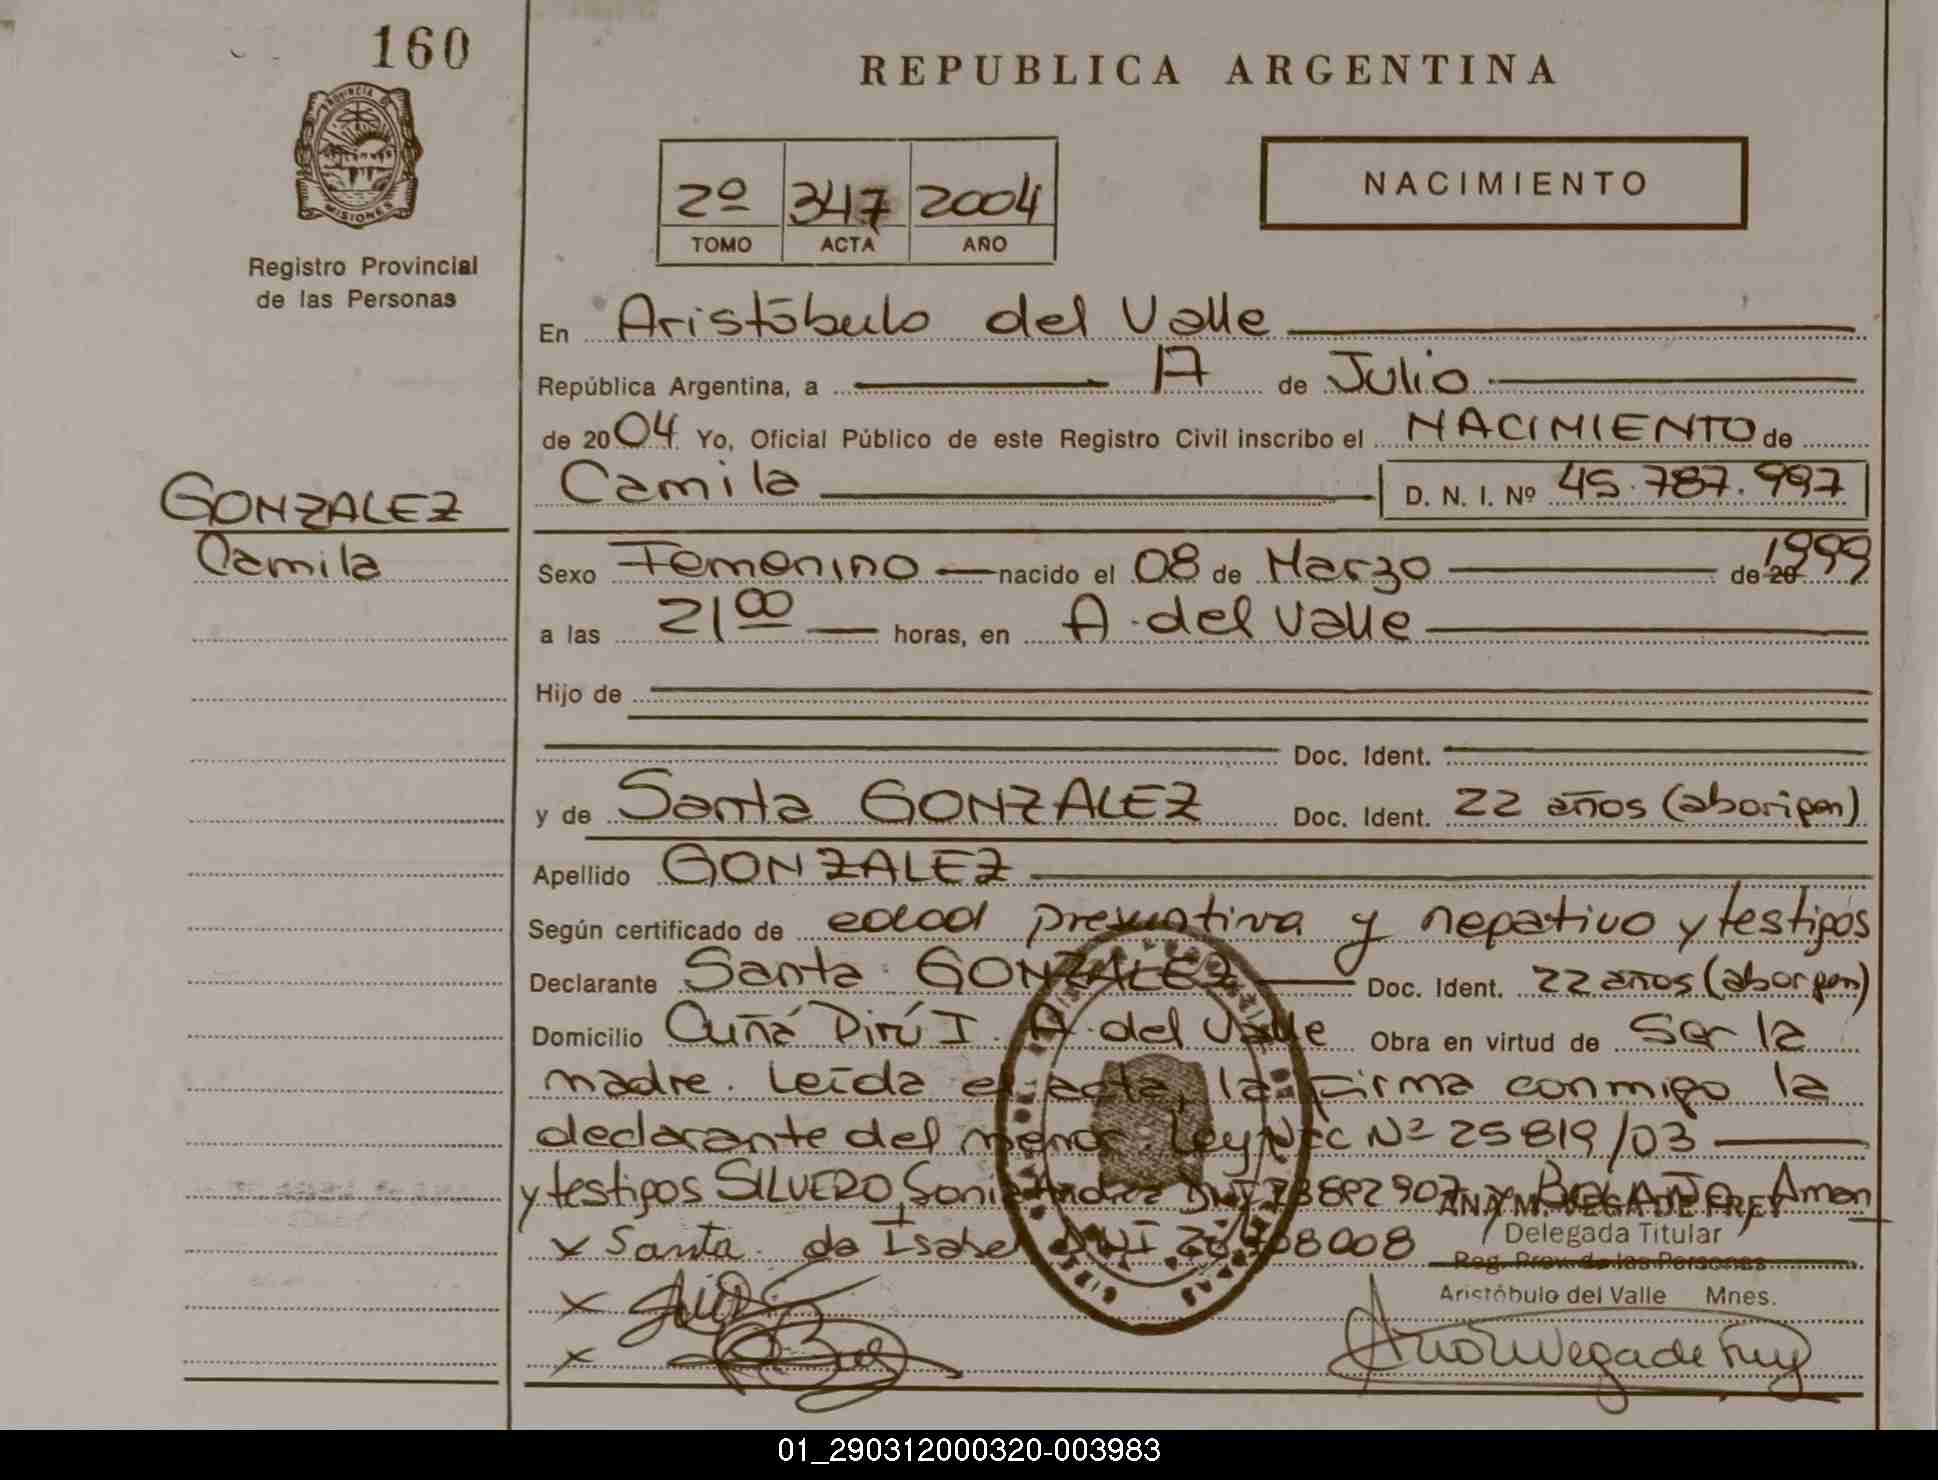 160
PROVINCIA DE
MISIONES
Registro Provincial
de las Personas
GONZALEZ
Camila
REPUBLICA ARGENTINA
2º 347 2004
TOMO ACTA AÑO
NACIMIENTO
En Aristóbulo del Valle
República Argentina, a 17 de Julio
de 2004 Yo, Oficial Público de este Registro Civil inscribo el NACIMIENTO de
Camila D. N. I. Nº 45.787.997
Sexo Femenino nacido el 08 de Marzo de 20 1999
a las 21 00 horas, en A. del Valle
Hijo de
Doc. Ident.
y de Santa GONZALEZ Doc. Ident. 22 años (aborigen)
Apellido GONZALEZ
Según certificado de edad presuntiva y negativo y testigos
Declarante Santa GONZALEZ Doc. Ident. 22 años (aborigen)
Domicilio Cuñá Pirú I. A. del Valle Obra en virtud de Ser la
madre. Leída el acta, la firma conmigo la
declarante del menor Ley Nac Nº 25819/03
y testigos SILVERO, Sonia Andrea DNI y Aman
da Isabel DNI
x Santa
ANA M. VEGA DE FREY
Delegada Titular
Reg. Prov. de las Personas
Aristóbulo del Valle Mnes.
x
x
01_290312000320-003983